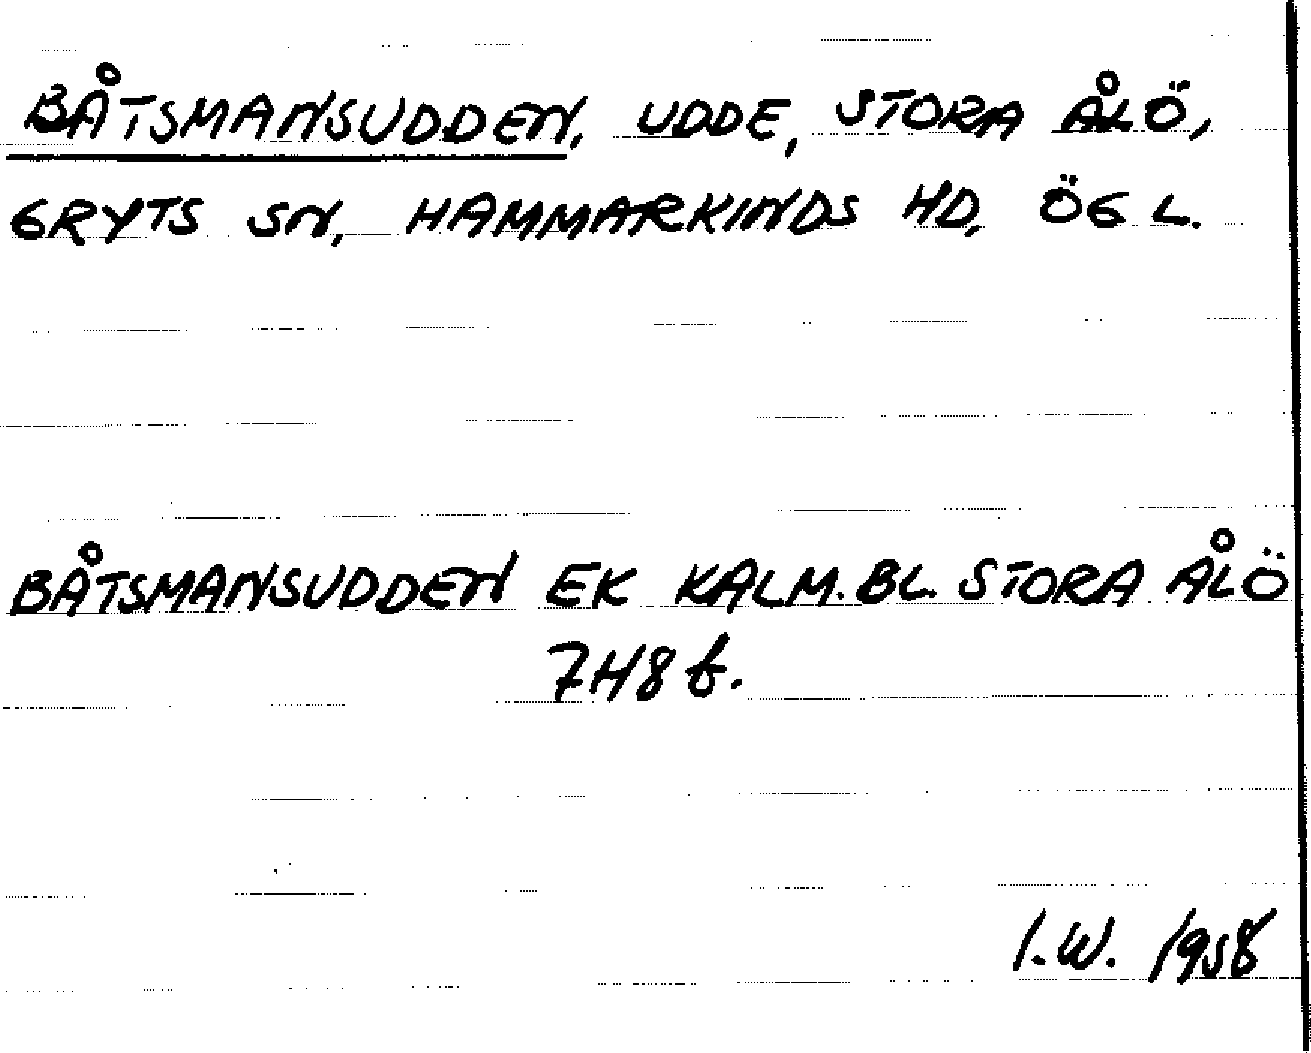 BÅTSMANSUDDEN, UDDE, STORA ÅLÖ,
GRYTS SN, HAMMARKINDS HD, ÖG L.
BÅTSMANSUDDEN EK KALM.BL. STORA ÅLÖ
7H8 f.
I.W. 1958